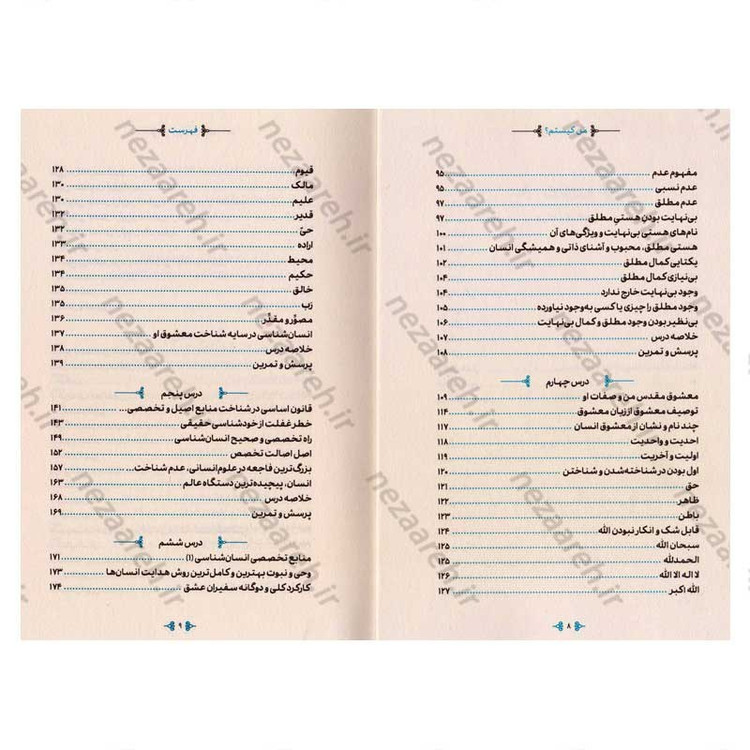 من کیستم؟
مفهوم عدم ۹۵
عدم نسبی ۹۵
عدم مطلق ۹۷
بی‌نهایت بودن هستی مطلق ۹۷
نام‌های هستی بی‌نهایت و ویژگی‌های آن ۱۰۰
هستی مطلق، محبوب و آشنای ذاتی و همیشگی انسان ۱۰۱
یکتایی کمال مطلق ۱۰۲
بی‌نیازی کمال مطلق ۱۰۴
وجود بی‌نهایت خارج ندارد ۱۰۴
وجود مطلق را چیزی یا کسی به وجود نیاورده ۱۰۵
بی‌نظیر بودن وجود مطلق و کمال بی‌نهایت ۱۰۶
خلاصه درس ۱۰۷
پرسش و تمرین ۱۰۸
درس چهارم
معشوق مقدس من و صفات او ۱۰۹
توصیف معشوق از زبان معشوق ۱۱۴
چند نام و نشان از معشوق انسان ۱۱۷
احدیت و واحدیت ۱۱۸
اولیت و آخریت ۱۱۹
اول بودن در شناخته‌شدن و شناختن ۱۲۰
حق ۱۲۱
ظاهر ۱۲۲
باطن ۱۲۳
قابل شک و انکار نبودن الله ۱۲۴
سبحان الله ۱۲۵
الحمدلله ۱۲۵
لا اله الا الله ۱۲۶
الله اکبر ۱۲۷
۸
فهرست
قیوم ۱۲۸
مالک ۱۳۰
علیم ۱۳۰
قدیر ۱۳۲
حیّ ۱۳۲
اراده ۱۳۳
محیط ۱۳۴
حکیم ۱۳۴
خالق ۱۳۵
رَب ۱۳۵
مصوِّر و مقدِّر ۱۳۶
انسان‌شناسی در سایه شناخت معشوق او ۱۳۷
خلاصه درس ۱۳۸
پرسش و تمرین ۱۳۹
درس پنجم
قانون اساسی در شناخت منابع اصیل و تخصصی... ۱۴۱
خطر غفلت از خودشناسی حقیقی ۱۴۳
راه تخصصی و صحیح انسان‌شناسی ۱۴۹
اصل اصالت تخصص ۱۵۲
بزرگ‌ترین فاجعه در علوم انسانی، عدم شناخت... ۱۵۷
انسان، پیچیده‌ترین دستگاه عالم ۱۶۳
خلاصه درس ۱۶۸
پرسش و تمرین ۱۶۹
درس ششم
منابع تخصصی انسان‌شناسی (۱) ۱۷۱
وحی و نبوت بهترین و کامل‌ترین روش هدایت انسان‌ها ۱۷۳
کارکرد کلی و دوگانه سفیران عشق ۱۷۴
۹
nezaareh.ir